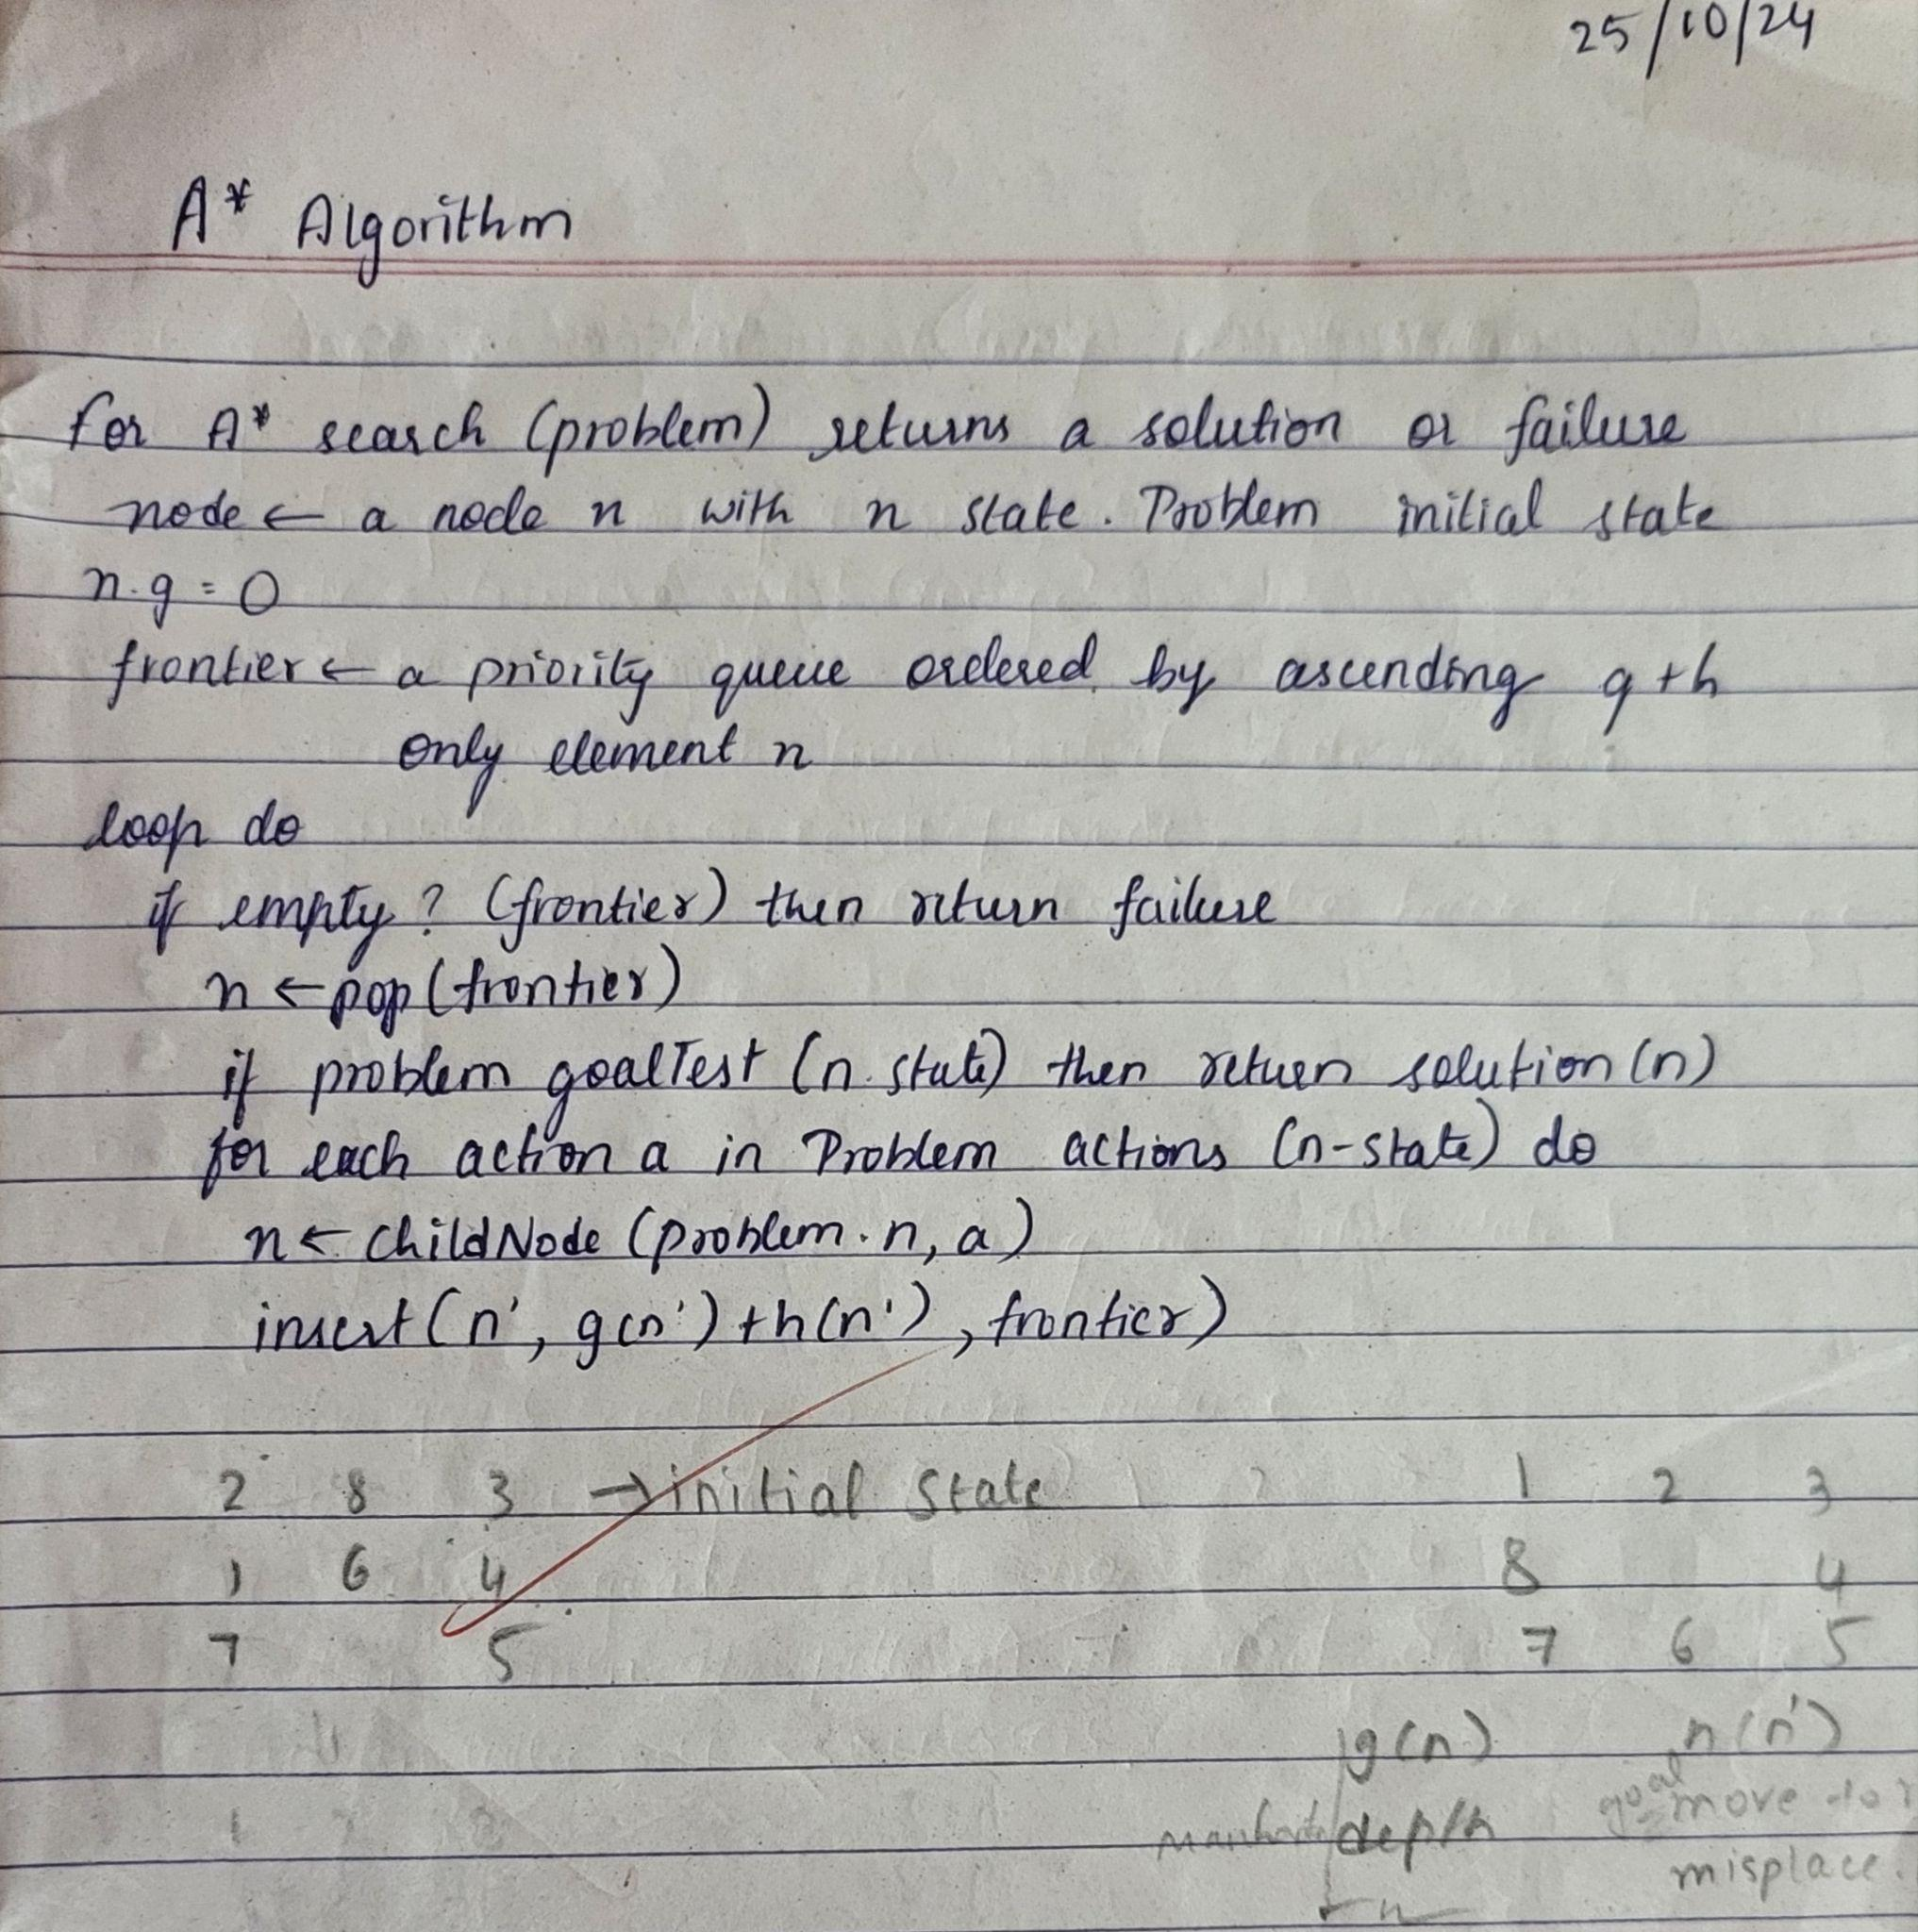 25/10/24
A* Algorithm
for A* search (problem) returns a solution or failure
node ← a node n with n state. Problem initial state
n.g = 0
frontier ← a priority queue ordered by ascending g+h
only element n
loop do
if empty? (frontier) then return failure
n ← pop (frontier)
if problem goalTest (n. state) then return solution (n)
for each action a in Problem actions (n-state) do
n ← childNode (problem. n, a)
insert (n', g(n') + h(n'), frontier)
2 8 3 → initial state 1 2 3
1 6 4 8 4
7 5 7 6 5
g(n) h(n')
depth goal move to
misplace.